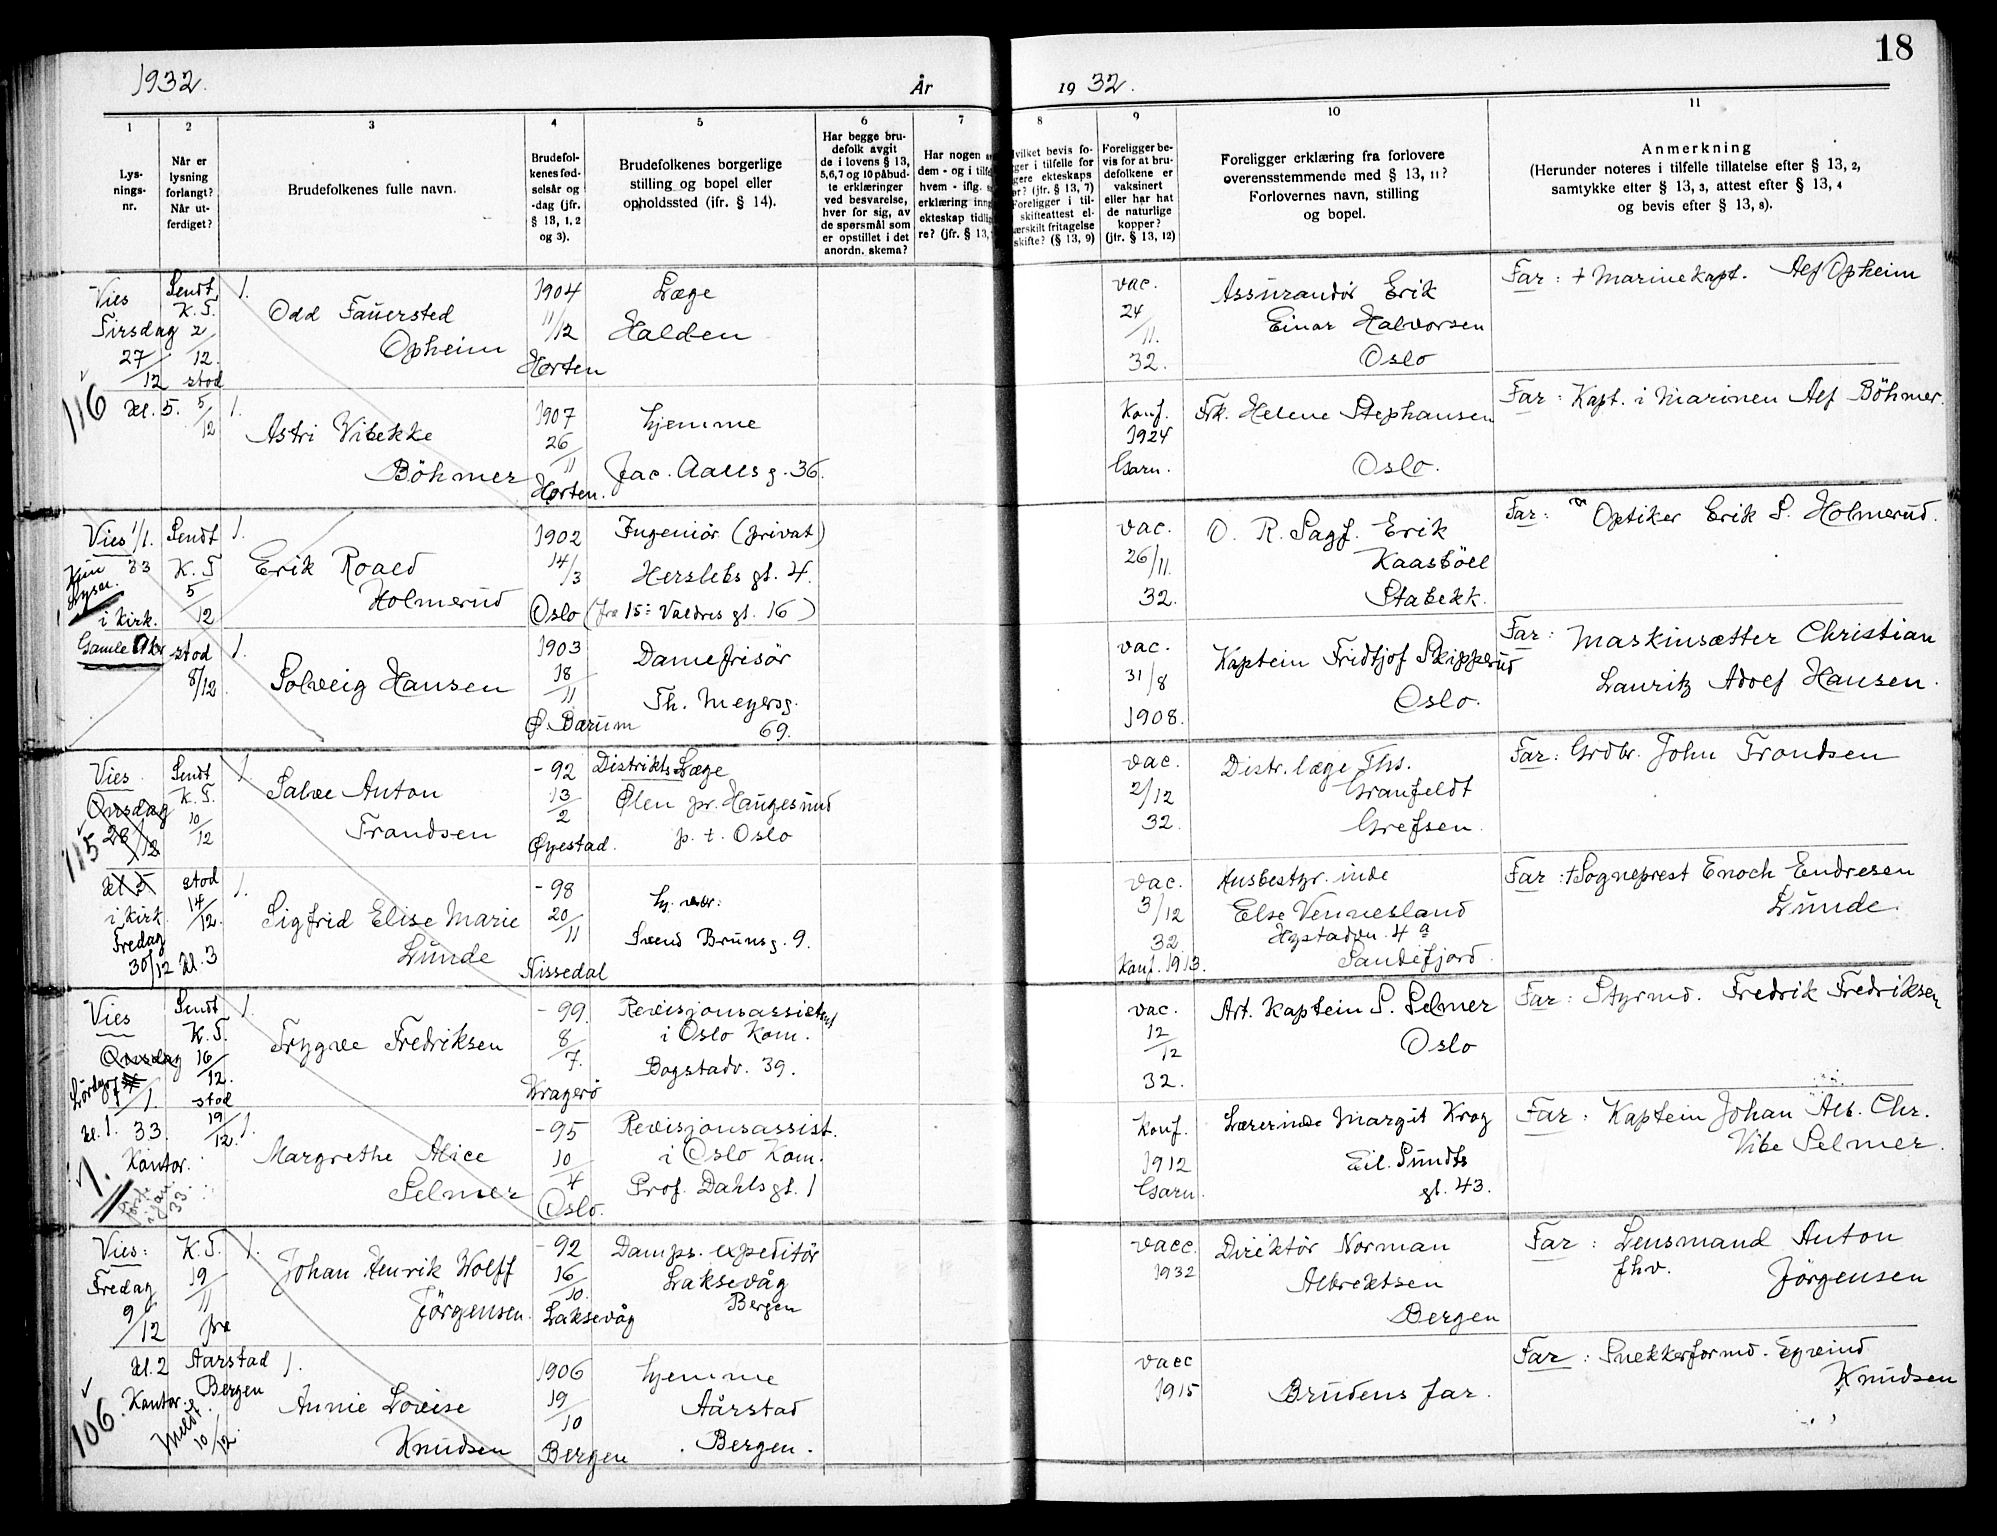 18
1932.
År
19 32.
1
2
3
4
5
6
7
8
9
10
11
Lys-
nings-
nr.
Når er
lysning
forlangt?
Når ut-
ferdiget?
Brudefolkenes fulle navn.
Brudefol-
kenes fød-
selsår og
-dag (jfr.
§ 13, 1, 2
og 3).
Brudefolkenes borgerlige
stilling og bopel eller
opholdssted (ifr. § 14).
Har begge bru-
defolk avgit
de i lovens § 13,
5,6,7 og 10 påbud-
te erklæringer
ved besvarelse,
hver for sig, av
de spørsmål som
er opstillet i det
anordn. skema?
Har nogen
dem - og i tilfe
hvem - iflg.
erklæring inng
ekteskap tidlig
re? (jfr. § 13,
vilket bevis fo-
ger i tilfelle for
gere ekteskaps
or? (jfr. § 13, 7)
Foreligger i til-
skifteattest el-
særskilt fritagelse
skifte? (§ 13, 9)
Foreligger be-
vis for at bru-
defolkene er
vaksinert
eller har hat
de naturlige
kopper?
(jfr. § 13, 12)
Foreligger erklæring fra forlovere
overensstemmende med § 13, 11?
Forlovernes navn, stilling
og bopel.
Anmerkning
(Herunder noteres i tilfelle tillatelse efter § 13, 2,
samtykke efter § 13, 3, attest efter § 13, 4
og bevis efter § 13, 8).
Vies
Tirsdag
27/12
kl. 5.
116
Sendt
K. T.
2/12.
stod
5/12
1.
Odd Fauersted
Opheim
1904
11/12
Horten
Læge
Halden
vac.
24/11.
32.
Assurandör Erik
Einar Halvorsen
Oslo
Far: + Marinekapt. Alf Opheim
1.
Astri Vibekke
Böhmer
1907
26/11
Horten.
hjemme
Jac. Aallsg. 36.
Konf.
1924
Garn.
Frk. Helene Stephansen
Oslo.
Far: Kapt. i Marinen Alf Böhmer.
Vies 1/1.
33
i kirk.
Gamle Aker
Sendt
K. T
5/12
stod
8/12
1.
Erik Roald
Holmerud
1902
14/3
Oslo
Ingeniør (privat)
Herslebs gt. 4.
(fra 15: Valdres gt. 16)
vac.
26/11.
32.
O. R. Sagf. Erik
Kaasböll
Stabekk.
Far: Optiker Erik S. Holmerud.
1.
Solveig Hansen
1903
18/11
Ø. Bærum
Damefrisör
Th. Meyersg.
69.
vac.
31/8
1908.
Kaptein Fridtjof Skipperud
Oslo.
Far: Maskinsætter Christian
Lauritz Adolf Hansen.
Vies
Onsdag
28/12
kl. 5
i kirk.
Fredag
30/12 kl. 3
115
Sendt
K. T.
10/12
stod
14/12.
1.
Salve Anton
Frandsen
- 92
13/2
Øyestad.
Distrikts Læge
Ølen pr. Haugesund
p. t. Oslo
vac.
2/12
32.
Distr. læge Ths.
Granfeldt
Grefsen.
Far: Grdbr. John Frandsen
1.
Sigfrid Elise Marie
Lunde
- 98
20/11
Nissedal
hj. vær:
Svend Brunsg. 9.
vac.
3/12
32
Konf. 1913.
Husbestyr.inde
Else Vennesland
Hystadvn. 4 a
Sandefjord.
Far: + Sogneprest Enoch Endresen
Lunde.
Vies
Onsdag
Lördag
7/1.
kl. 1. 33.
Kontor.
1.
Sendt
K. T.
16/12.
stod
19/12.
1.
Trygve Fredriksen
- 99.
8/7.
Kragerö
Revisjonsassistent
i Oslo Kom.
Bogstadv. 39.
vac.
12/12
32.
Art. Kaptein S. Selmer
Oslo
Far: Styrmd. Fredrik Fredriksen
1.
Margrethe Alice
Selmer
- 95
10/4
Oslo.
Revisjonsassist.
i Oslo Kom.
Prof. Dahls gt. 1
Konf.
1912
Garn.
Lærerinde Margit Krog
Eil. Sundts
gt. 43.
Far: Kaptein Johan Alb. Chr.
Vibe Selmer.
Vies:
Fredag
9/12
kl. 2
Kontor.
106.
K. T.
19/11
fra
Aarstad
Bergen
Meldt.
10/12.
1.
Johan Henrik Wolff
Jörgensen.
- 92
16/10.
Laksevåg
Damps. expeditör
Laksevåg
Bergen
vacc.
1932
Direktör Norman
Albrektsen
Bergen
Far: Lensmand Anton
fhv. Jörgensen
1.
Annie Lovise
Knudsen
1906
19/10
Bergen
hjemme
Aårstad
Bergen.
vacc
1915
Brudens far.
Far: Snekkerformd. Eyvind
Knudsen